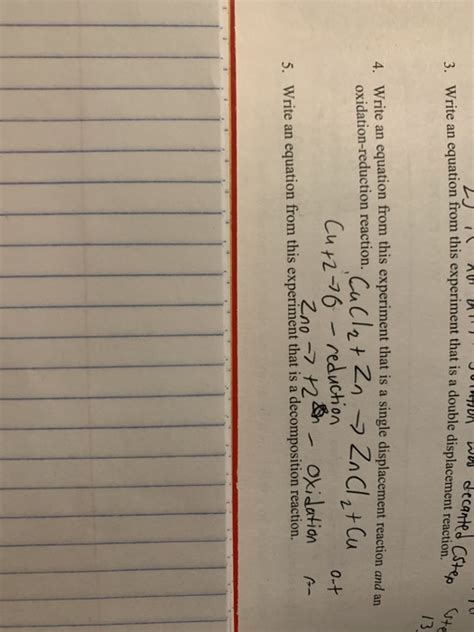 was decanted (step
13
3. Write an equation from this experiment that is a double displacement reaction.
4. Write an equation from this experiment that is a single displacement reaction and an
oxidation-reduction reaction. CuCl2 + Zn → ZnCl2 + Cu
Cu +2 → 0 - reduction
Zn 0 → +2 - oxidation
5. Write an equation from this experiment that is a decomposition reaction.